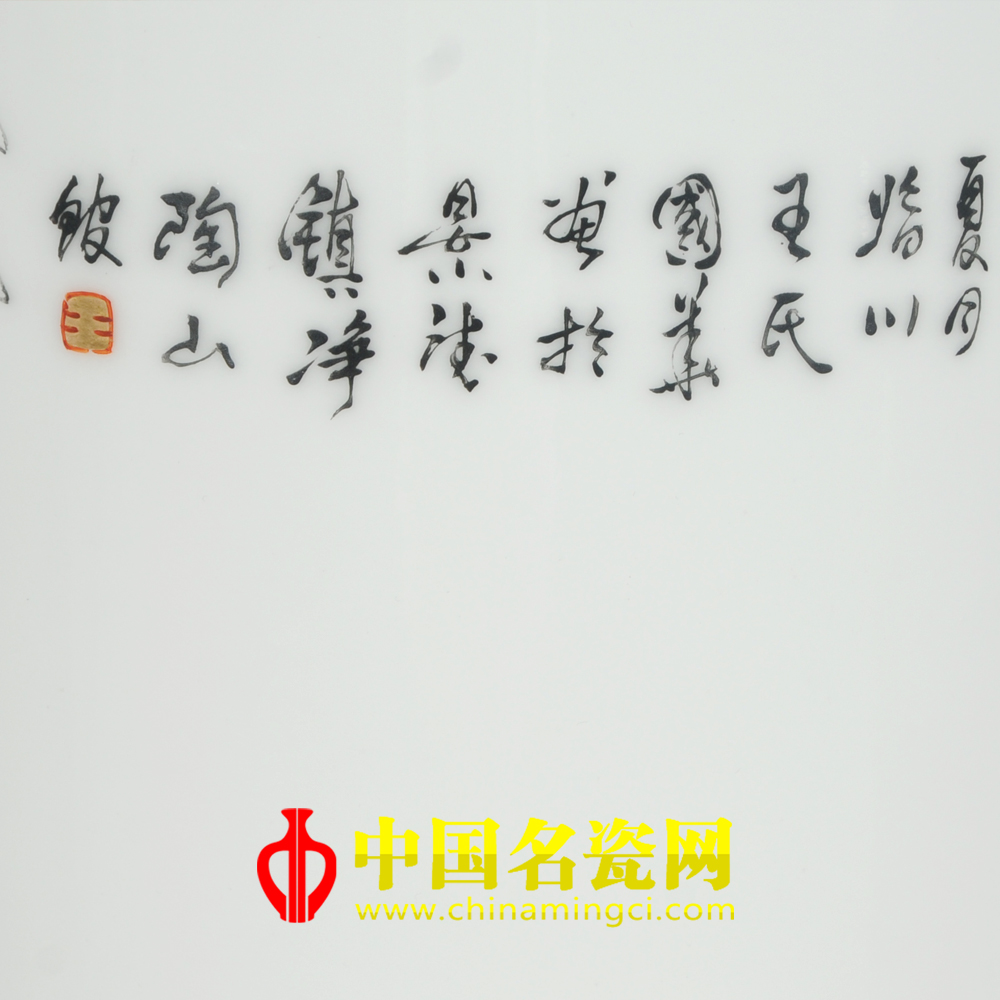 夏月
牆川
王氏
國華
畫於
景德
鎮淨
陶山
館
王
中国名瓷网
www.chinamingci.com